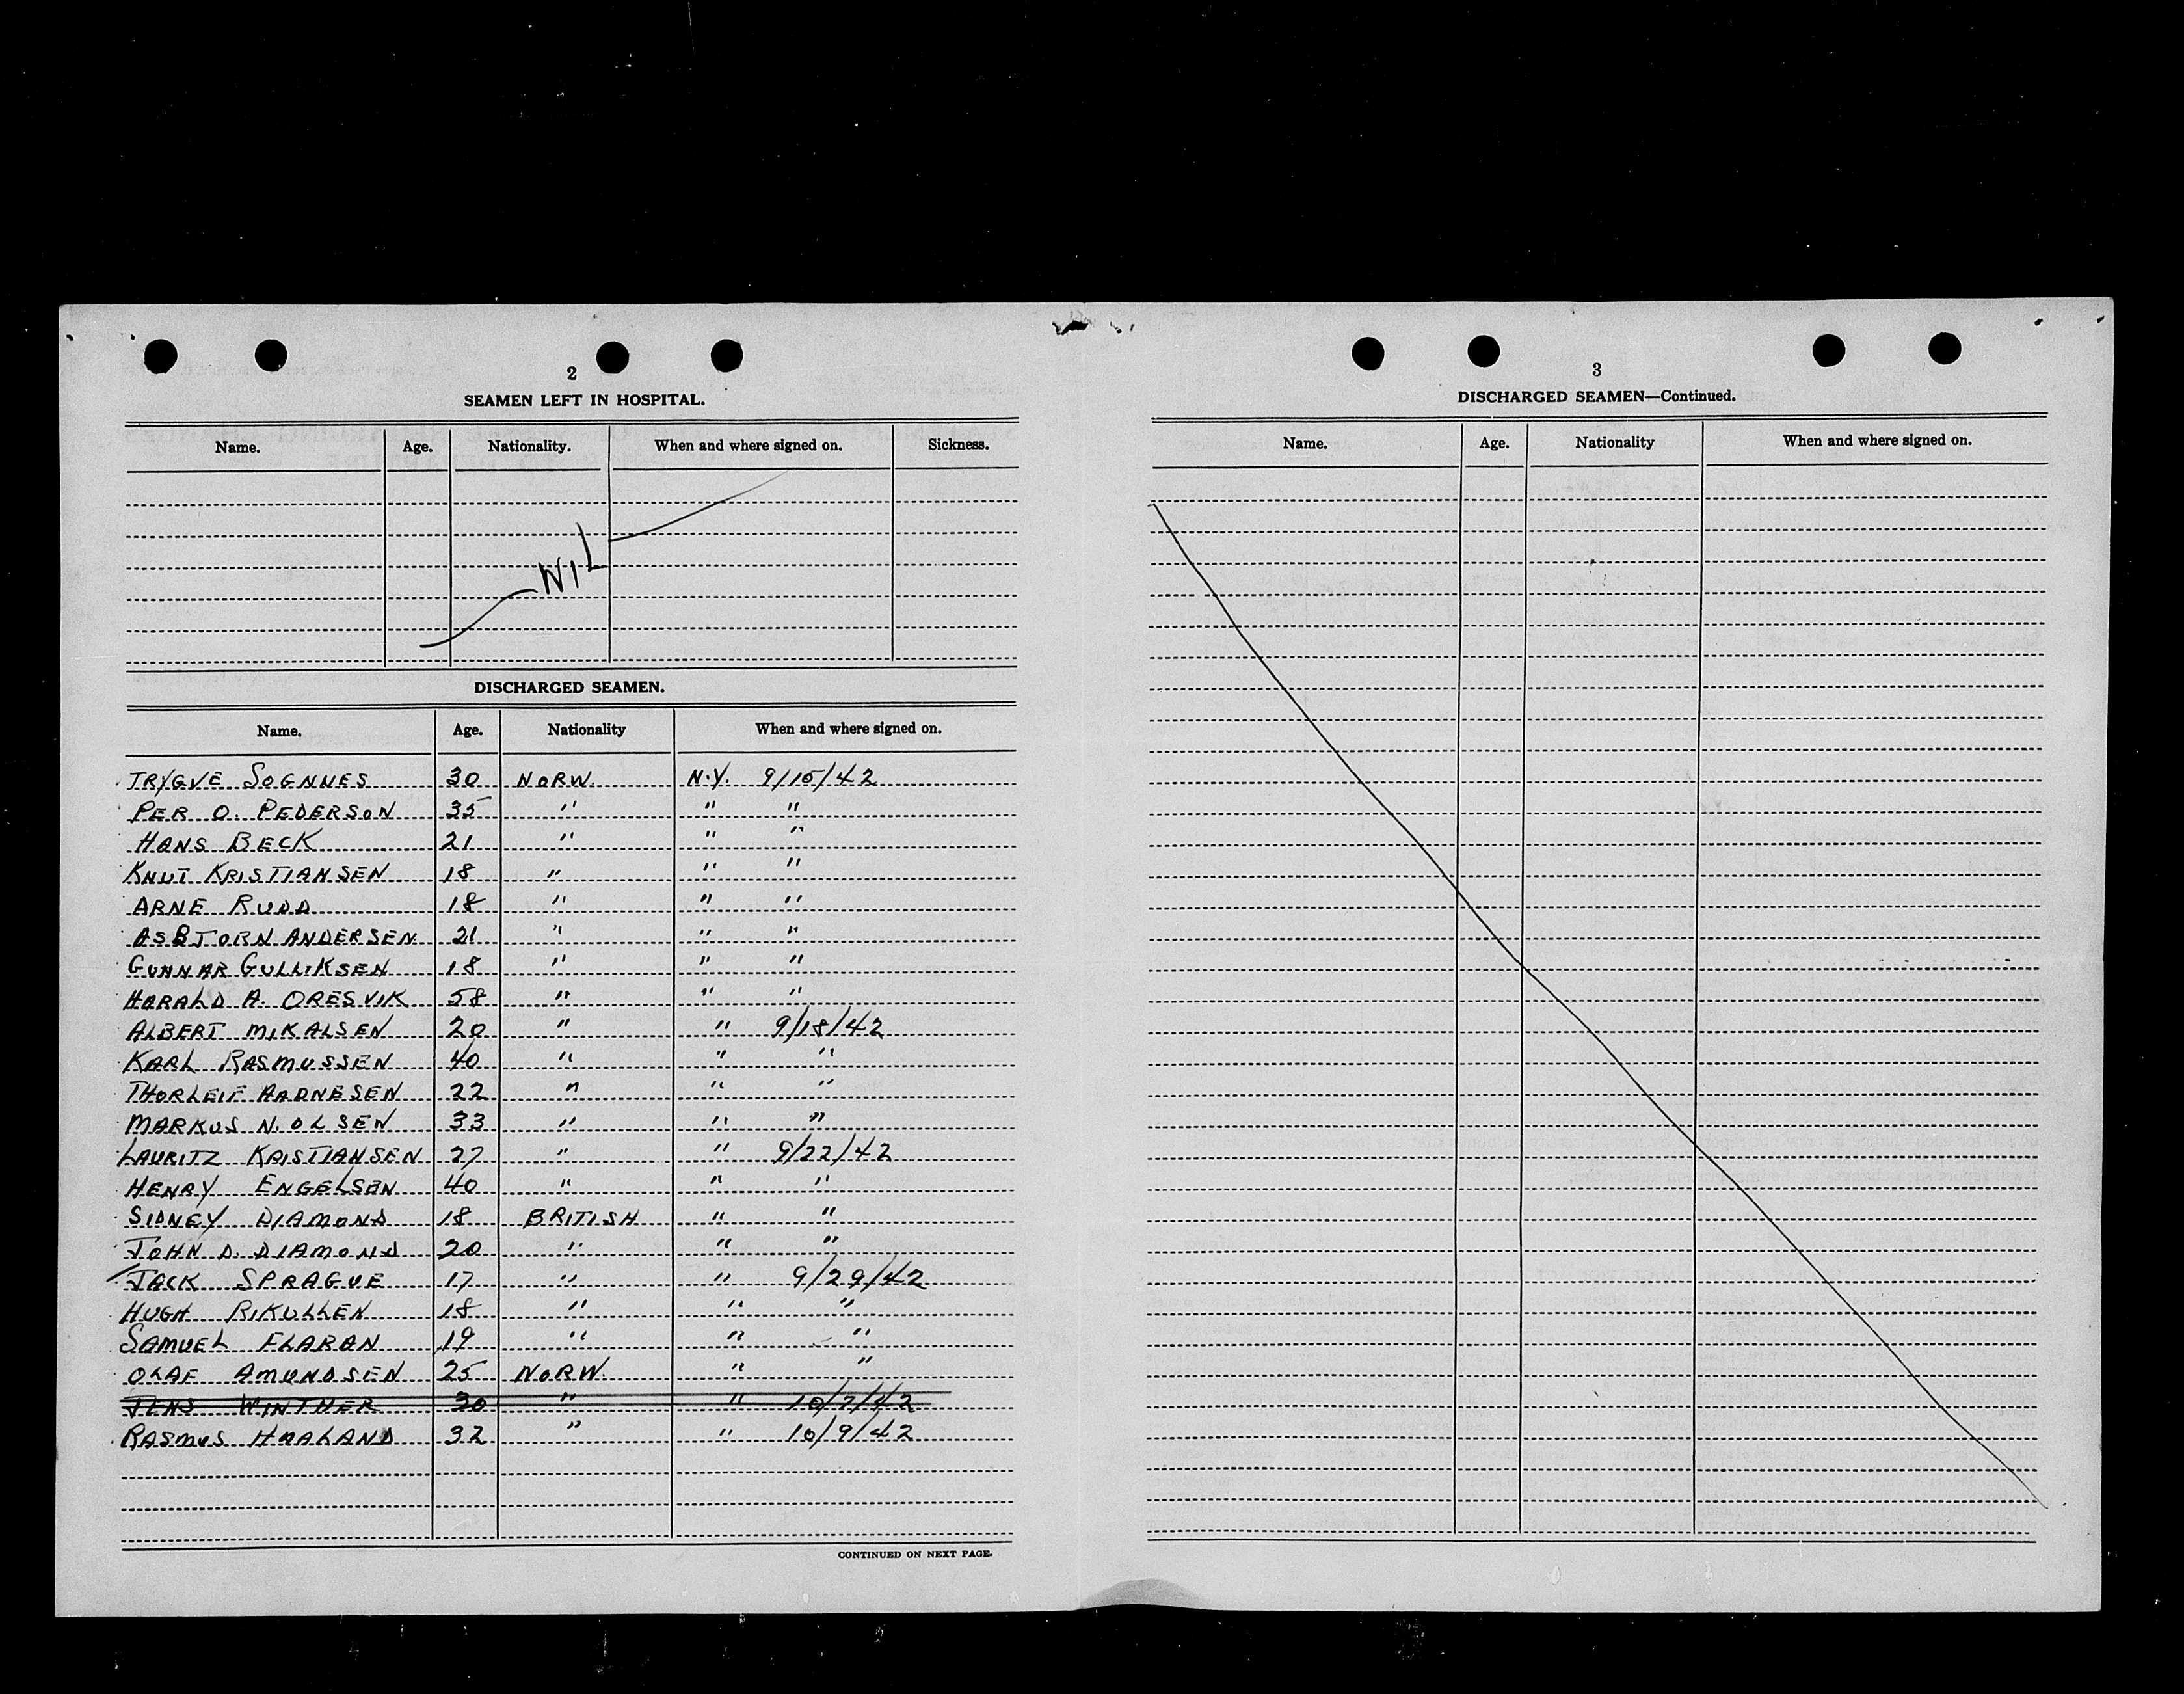 2
SEAMEN LEFT IN HOSPITAL.
Name. Age. Nationality. When and where signed on. Sickness.
NIL
DISCHARGED SEAMEN.
Name. Age. Nationality When and where signed on.
TRYGVE SOGNNES 30 NORW. N.Y. 9/15/42
PER O. PEDERSON 35 " " "
HANS BECK 21 " " "
KNUT KRISTIANSEN 18 " " "
ARNE RUDD 18 " " "
ASBJORN ANDERSEN 21 " " "
GUNNAR GULLIKSEN 18 " " "
HARALD A. ORESVIK 58 " " "
ALBERT MIKALSEN 20 " " 9/18/42
KARL RASMUSSEN 40 " " "
THORLEIF AADNESEN 22 " " "
MARKUS N. OLSEN 33 " " "
LAURITZ KRISTIANSEN 27 " " 9/22/42
HENRY ENGELSEN 40 " " "
SIDNEY DIAMOND 18 BRITISH " "
JOHN D. DIAMOND 20 " " "
JACK SPRAGUE 17 " " 9/29/42
HUGH RIKULLEN 18 " " "
SAMUEL FLARAN 19 " " "
OLAF AMUNDSEN 25 NORW. " "
JENS WINTHER 30 " " 10/7/42
RASMUS HAALAND 32 " " 10/9/42
CONTINUED ON NEXT PAGE.
3
DISCHARGED SEAMEN—Continued.
Name. Age. Nationality When and where signed on.